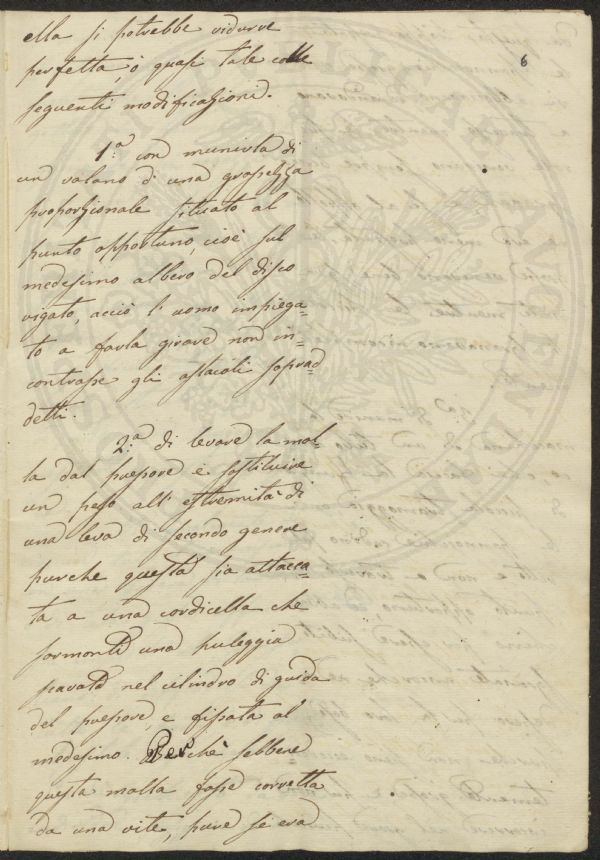 6
ella si potrebbe ridurre
perfetta, o quasi tale colle
seguenti modificazioni.
1.ª con munirla di
un volano d'una grossezza
proporzionale situato al
punto opportuno, cioè sul
medesimo albero del disco
rigato, acciò l'uomo impiega-
to a farla girare non in-
contrasse gli ostacoli soprad-
detti.
2.ª di levare la mol-
la dal pressore e sostituire
un peso all'estremità di
una leva di secondo genere
purche questa sia attacca-
ta a una cordicella che
sormonti una puleggia
scavata nel cilindro di guida
del pressore, e fissata al
medesimo. Perchè sebbene
questa molla fosse corretta
da una vite, pure si era